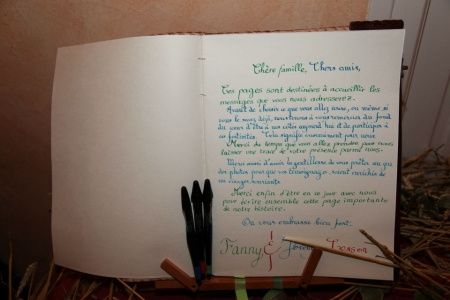 Chère famille, Chers amis,
Ces pages sont destinées à accueillir les
messages que vous nous adresserez.
Avant de choisir ce que vous allez écrire, ou même si
vous le savez déjà, nous tenons à vous remercier du fond
du cœur d'être à nos côtés aujourd'hui et de participer à
nos festivités. Cela signifie énormément pour nous.
Merci du temps que vous allez prendre pour nous
laisser une trace de votre présence parmi nous.
Merci aussi d'avoir la gentillesse de vous prêter au jeu
des photos pour que vos témoignages soient enrichis de
vos visages souriants.
Merci enfin d'être en ce jour avec nous
pour écrire ensemble cette page importante
de notre histoire.
On vous embrasse bien fort.
Fanny &